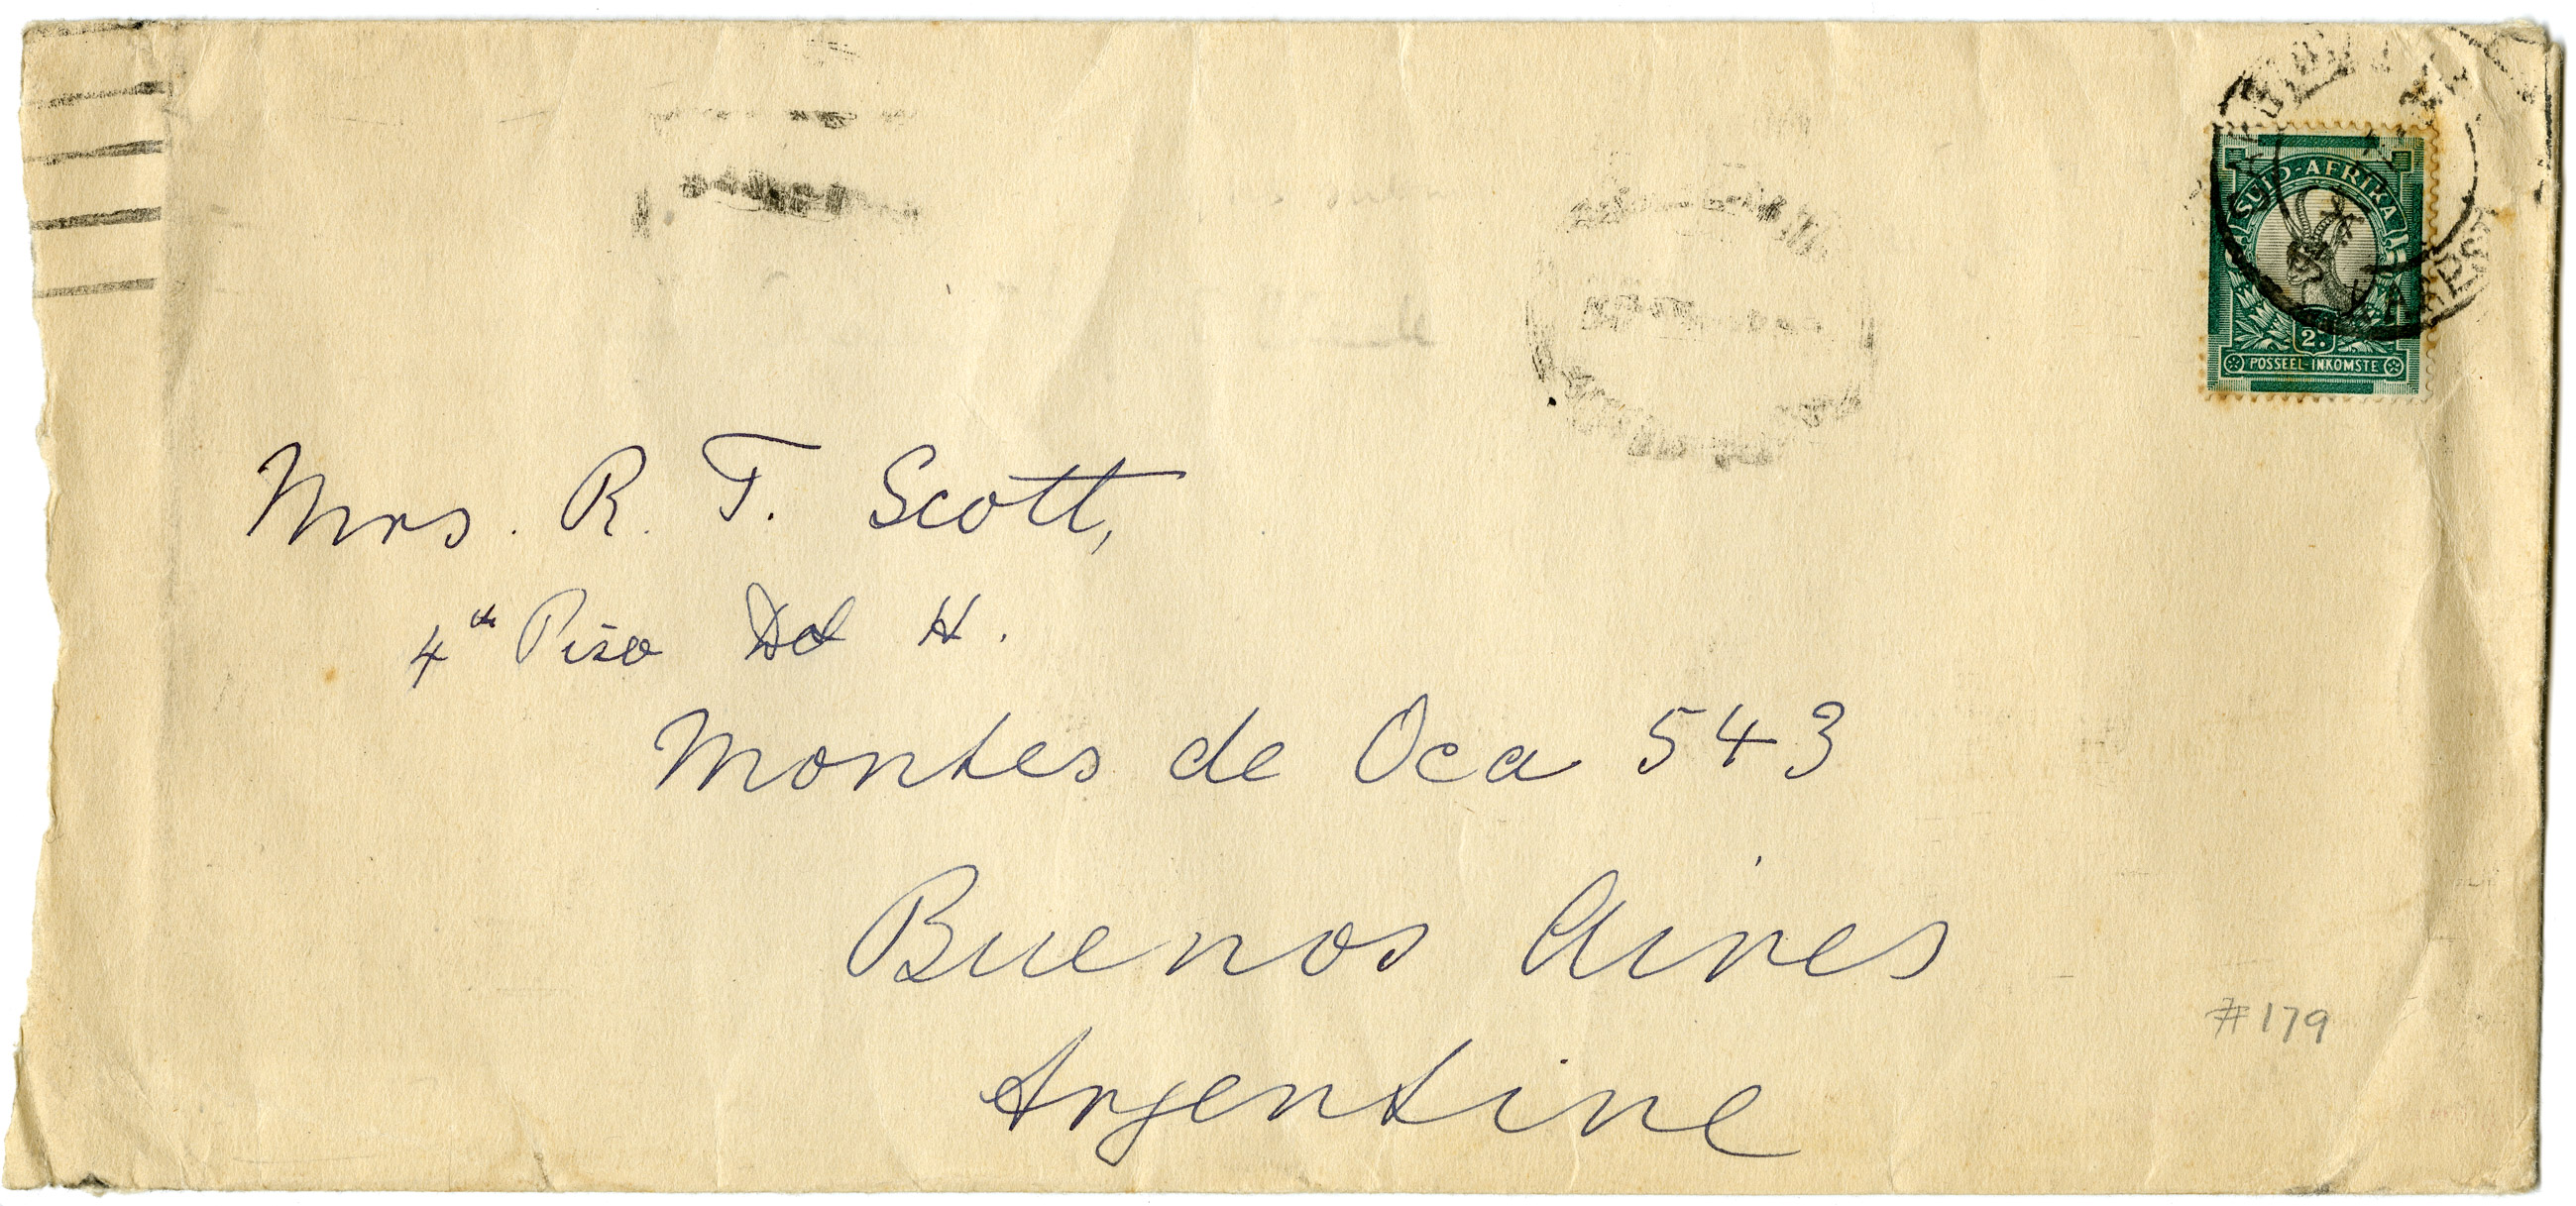 SUID-AFRIKA
2.
POSSEEL-INKOMSTE
Mrs. R. T. Scott,
4th Piso H.
Montes de Oca 543
Buenos Aires
Argentine
#179